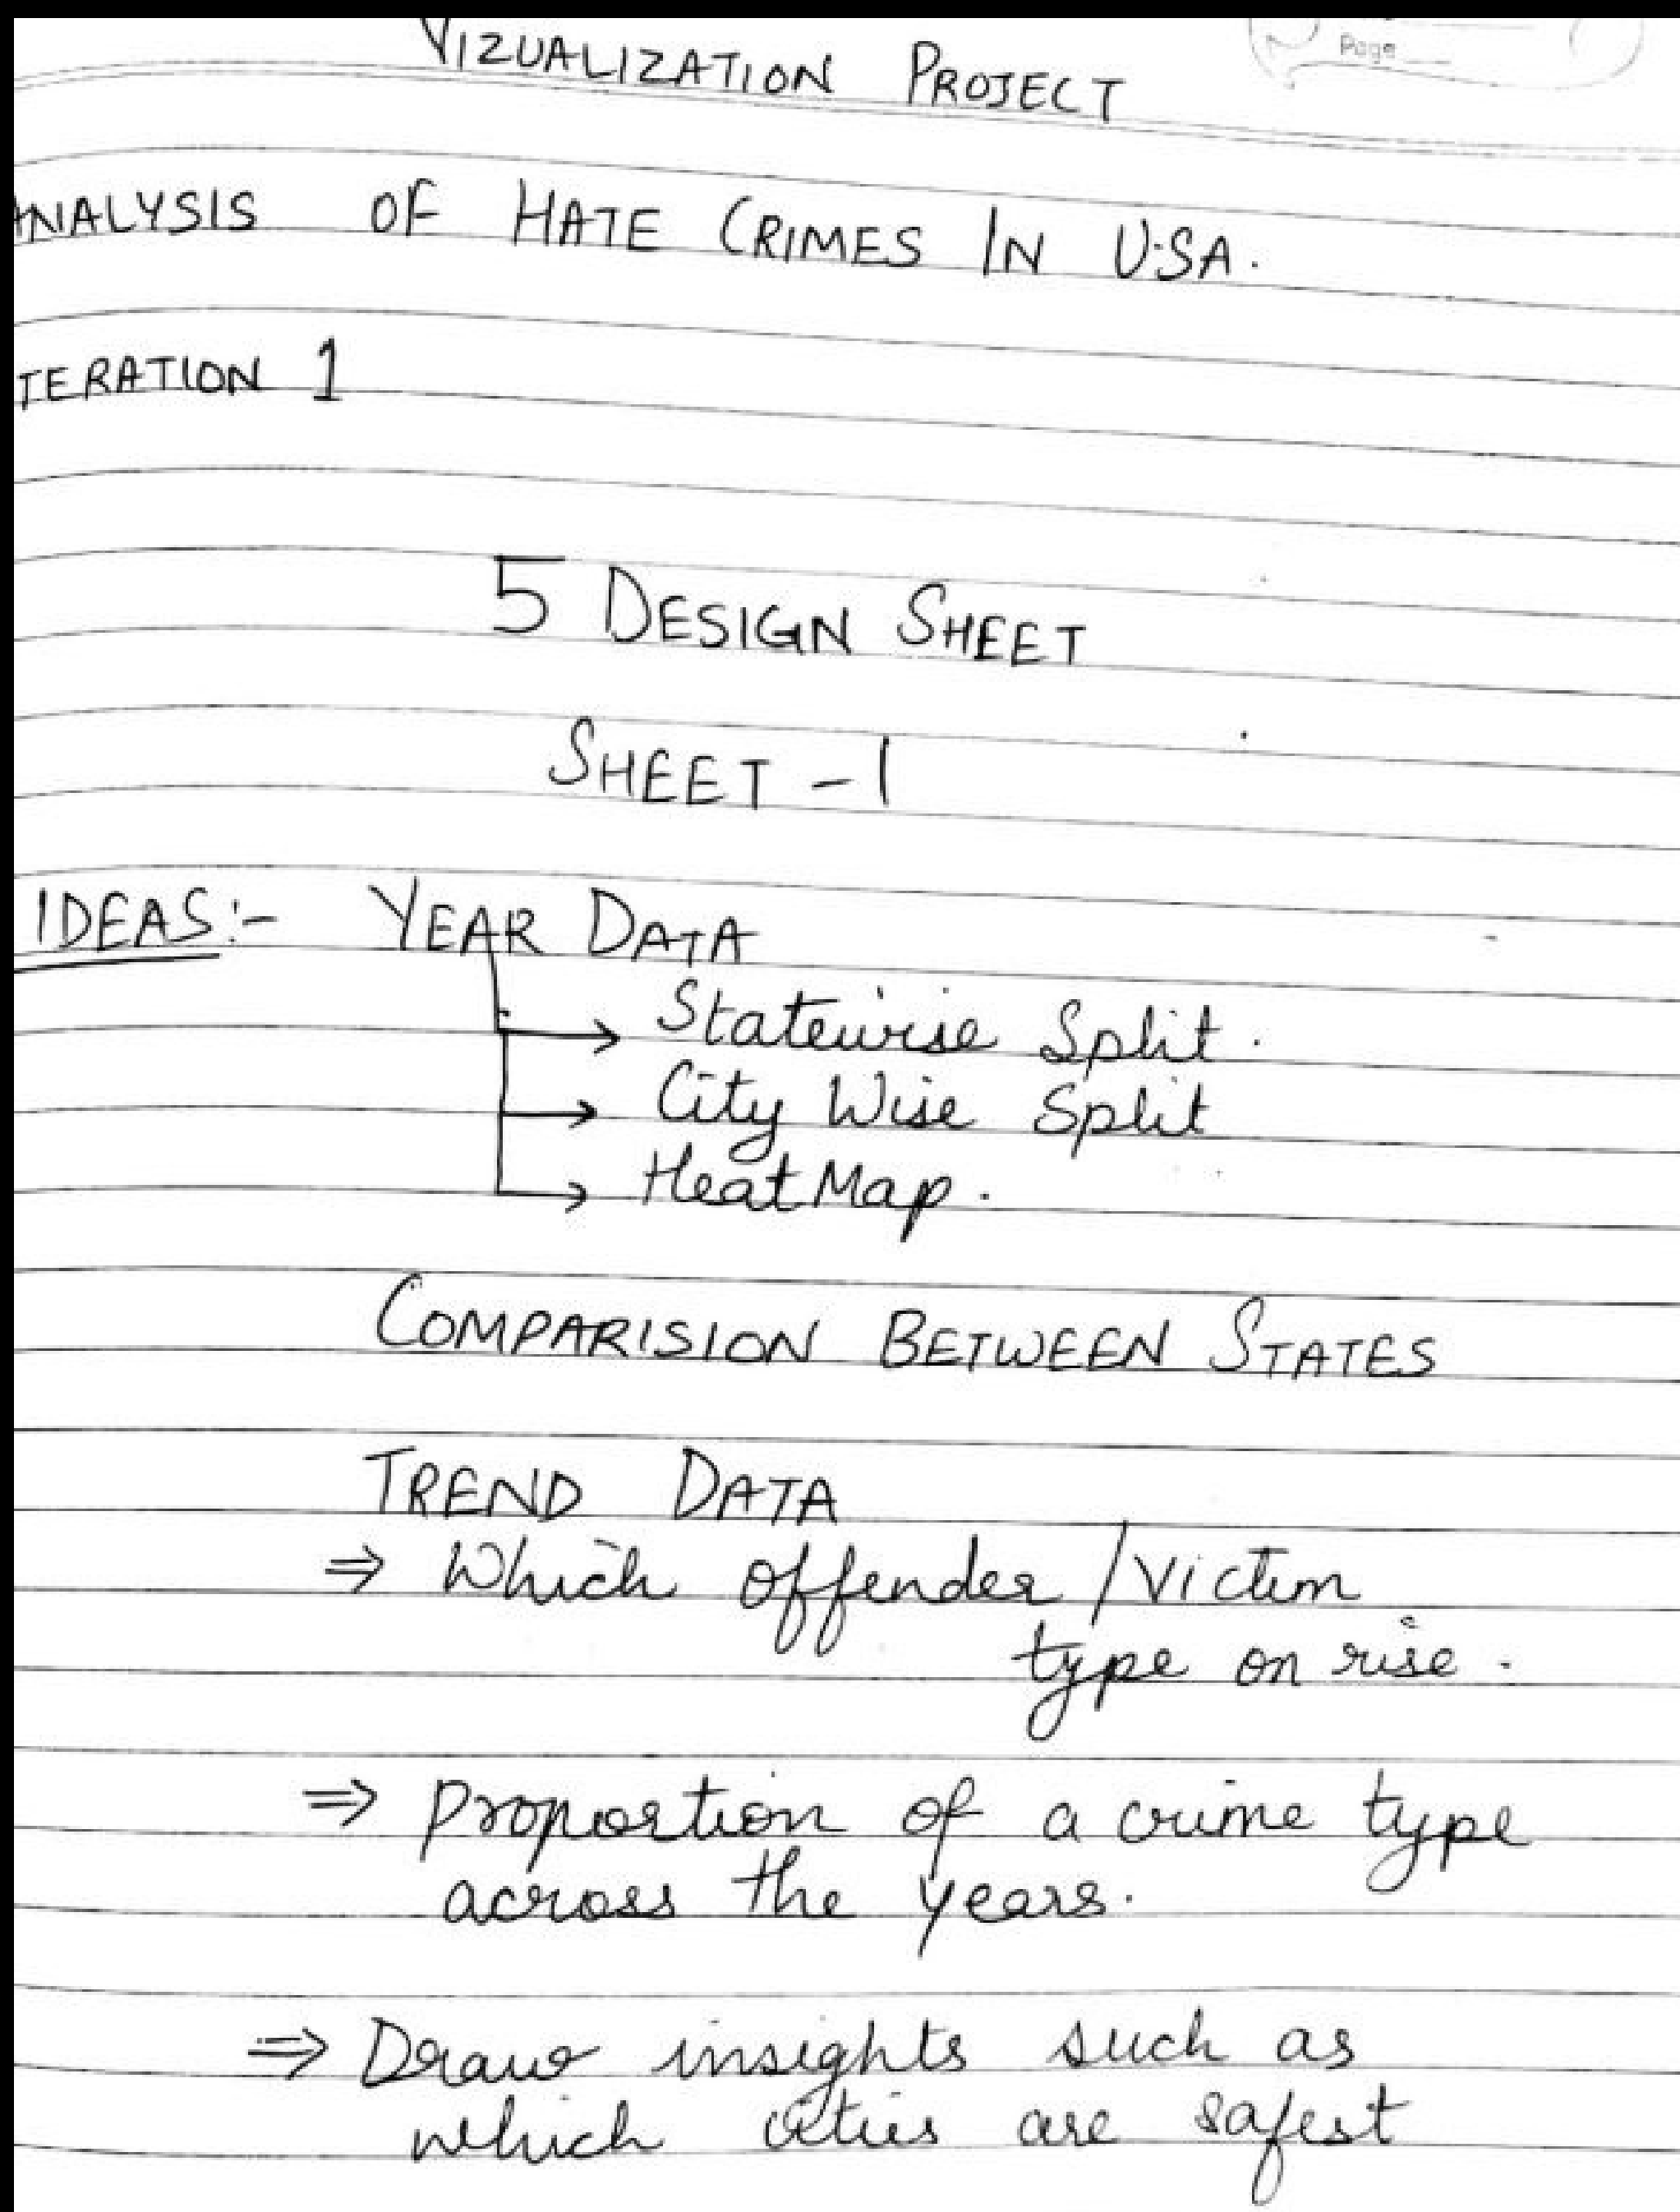 VIZUALIZATION PROJECT
Page
ANALYSIS OF HATE CRIMES IN USA.
ITERATION 1
5 DESIGN SHEET
SHEET - 1
IDEAS:- YEAR DATA
→ Statewise Split.
→ City Wise Split
→ HeatMap.
COMPARISION BETWEEN STATES
TREND DATA
⇒ Which offender / Victim
type on rise.
⇒ Proportion of a crime type
across the years.
⇒ Draw insights such as
which cities are safest